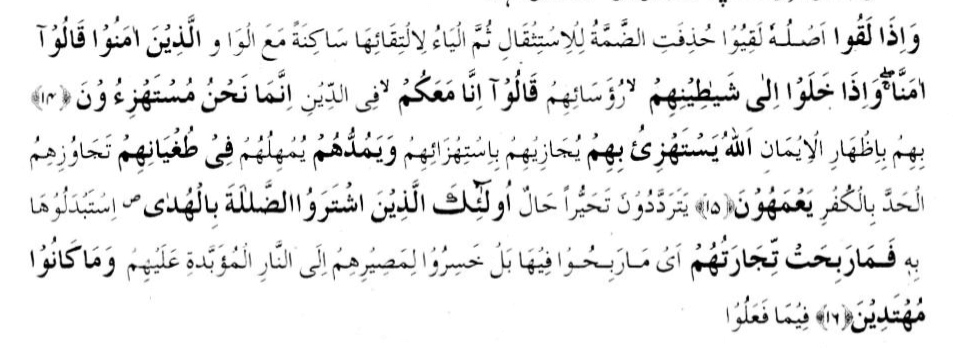 وَاِذَا لَقُوا اَصْلُهٗ لَقِيُوْا حُذِفَتِ الضَّمَّةُ لِلْاِسْتِثْقَالِ ثُمَّ الْيَاءُ لِالْتِقَائِهَا سَاكِنَةً مَعَ الْوَا و الَّذِيْنَ اٰمَنُوْا قَالُوْۤا
اٰمَنَّا ۖۚ وَاِذَا خَلَوْا اِلٰى شَيٰطِيْنِهِمْ ۙ رُؤَسَائِهِمْ قَالُوْۤا اِنَّا مَعَكُمْ ۙ فِى الدِّيْنِ اِنَّمَا نَحْنُ مُسْتَهْزِءُوْنَ ﴿۱۴﴾
بِهِمْ بِاِظْهَارِ الْاِيْمَانِ اَللّٰهُ يَسْتَهْزِئُ بِهِمْ يُجَازِيْهِمْ بِاِسْتِهْزَائِهِمْ وَيَمُدُّهُمْ يُمْهِلُهُمْ فِىْ طُغْيَانِهِمْ تَجَاوُزِهِمُ
الْحَدَّ بِالْكُفْرِ يَعْمَهُوْنَ ﴿۱۵﴾ يَتَرَدَّدُوْنَ تَحَيُّرًا حَالٌ اُولٰٓئِكَ الَّذِيْنَ اشْتَرَوُا الضَّلٰلَةَ بِالْهُدٰى ص اِسْتَبْدَلُوْهَا
بِهٖ فَمَا رَبِحَتْ تِّجَارَتُهُمْ اَىْ مَا رَبِحُوْا فِيْهَا بَلْ خَسِرُوْا لِمَصِيْرِهِمْ اِلَى النَّارِ الْمُؤَبَّدَةِ عَلَيْهِمْ وَمَا كَانُوْا
مُهْتَدِيْنَ ﴿۱۶﴾ فِيْمَا فَعَلُوْا